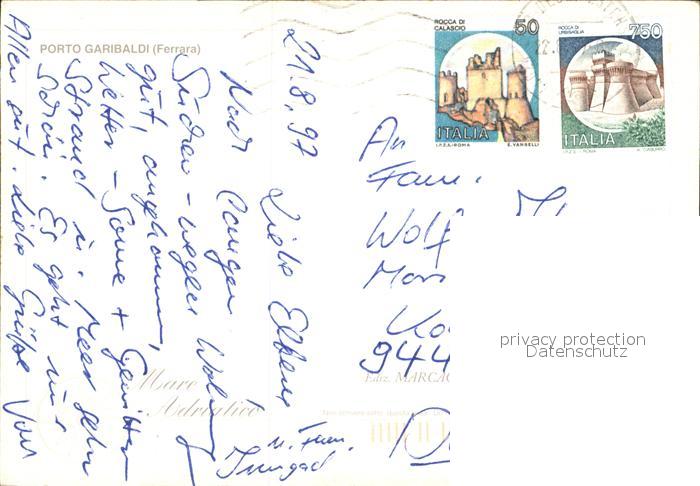 PORTO GARIBALDI (Ferrara)
21.8.97
Liebe Eltern
Nach langem
Suchen - wegen Wohnung
gut angekommen,
Wetter - Sonne + Gewitter
Strand u. Meer sehr
schön. Es geht uns
Allen gut. Liebe Grüße von
Irmgard
u. Fam.
Mare
Adriatico
ROCCA DI
CALASCIO
50
ITALIA
I.P.Z.S.-ROMA
E. VANGELLI
ROCCA DI
URBISAGLIA
750
ITALIA
I.P.Z.S. - ROMA
An
Fam.
Wolf
944
Ediz. MARCA
privacy protection
Datenschutz